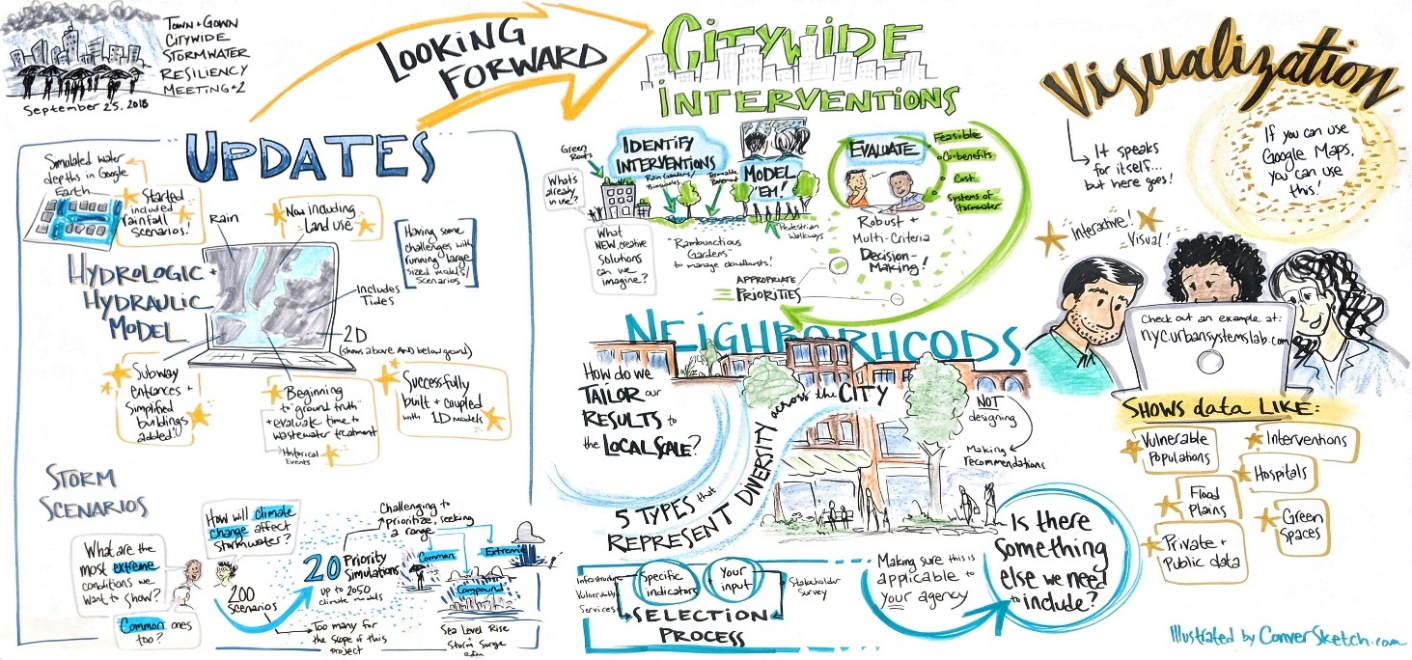 TOWN + GOWN
CITYWIDE
STORMWATER
RESILIENCY
MEETING #2
September 25, 2018
LOOKING
FORWARD
UPDATES
Simulated water
depths in Google
Earth
Started
included
rainfall
Scenarios!
Rain
Now including
Land use
Having some
challenges with
running large
sized models/
scenarios
HYDROLOGIC +
HYDRAULIC
MODEL
Includes
Tides
2D
(shows above AND below ground)
Subway
entrances +
Simplified
buildings
added
Beginning
to "ground truth"
+ evaluate time to
wastewater treatment
Historical
Events
Successfully
built + coupled
with 1D models
STORM
SCENARIOS
What are the
most extreme
conditions we
want to show?
Common ones
too?
How will climate
change affect
stormwater?
200
scenarios
20 Priority
Simulations
up to 2050
climate models
Too many for
the scope of this
project
Challenging to
prioritize, seeking
a range
Common
Extreme
Compound
Sea Level Rise
Storm Surge
CITYWIDE
INTERVENTIONS
IDENTIFY
INTERVENTIONS
Green
Roofs
What's
already
in use?
Rain Gardens/
Bioswales
Permeable
Pavement
What
NEW, creative
solutions
can we
imagine?
MODEL
'EM!
Pedestrian
Walkways
"Rambunctious
Gardens"
to manage cloudbursts!
EVALUATE
Feasible
Co-benefits
Cost
Systems of
Stormwater
Robust +
Multi-Criteria
Decision-
Making!
APPROPRIATE
PRIORITIES
NEIGHBORHOODS
How do we
TAILOR our
RESULTS to
the LOCAL SCALE?
5 TYPES that
REPRESENT DIVERSITY across the CITY
NOT
designing
Making
recommendations
Infrastructure
Vulnerability
Services
Specific
indicators
+ Your
input
Stakeholder
Survey
SELECTION
PROCESS
Making sure this is
applicable to
your agency
Is there
something
else we need
to include?
Visualization
It speaks
for itself...
but here goes!
If you can use
Google Maps,
you can use
this!
Interactive!
Visual!
Check out an example at:
nycurbansystemslab.com
SHOWS data LIKE:
Vulnerable
Populations
Interventions
Flood
Plains
Hospitals
Private +
Public data
Green
Spaces
Illustrated by ConverSketch.com